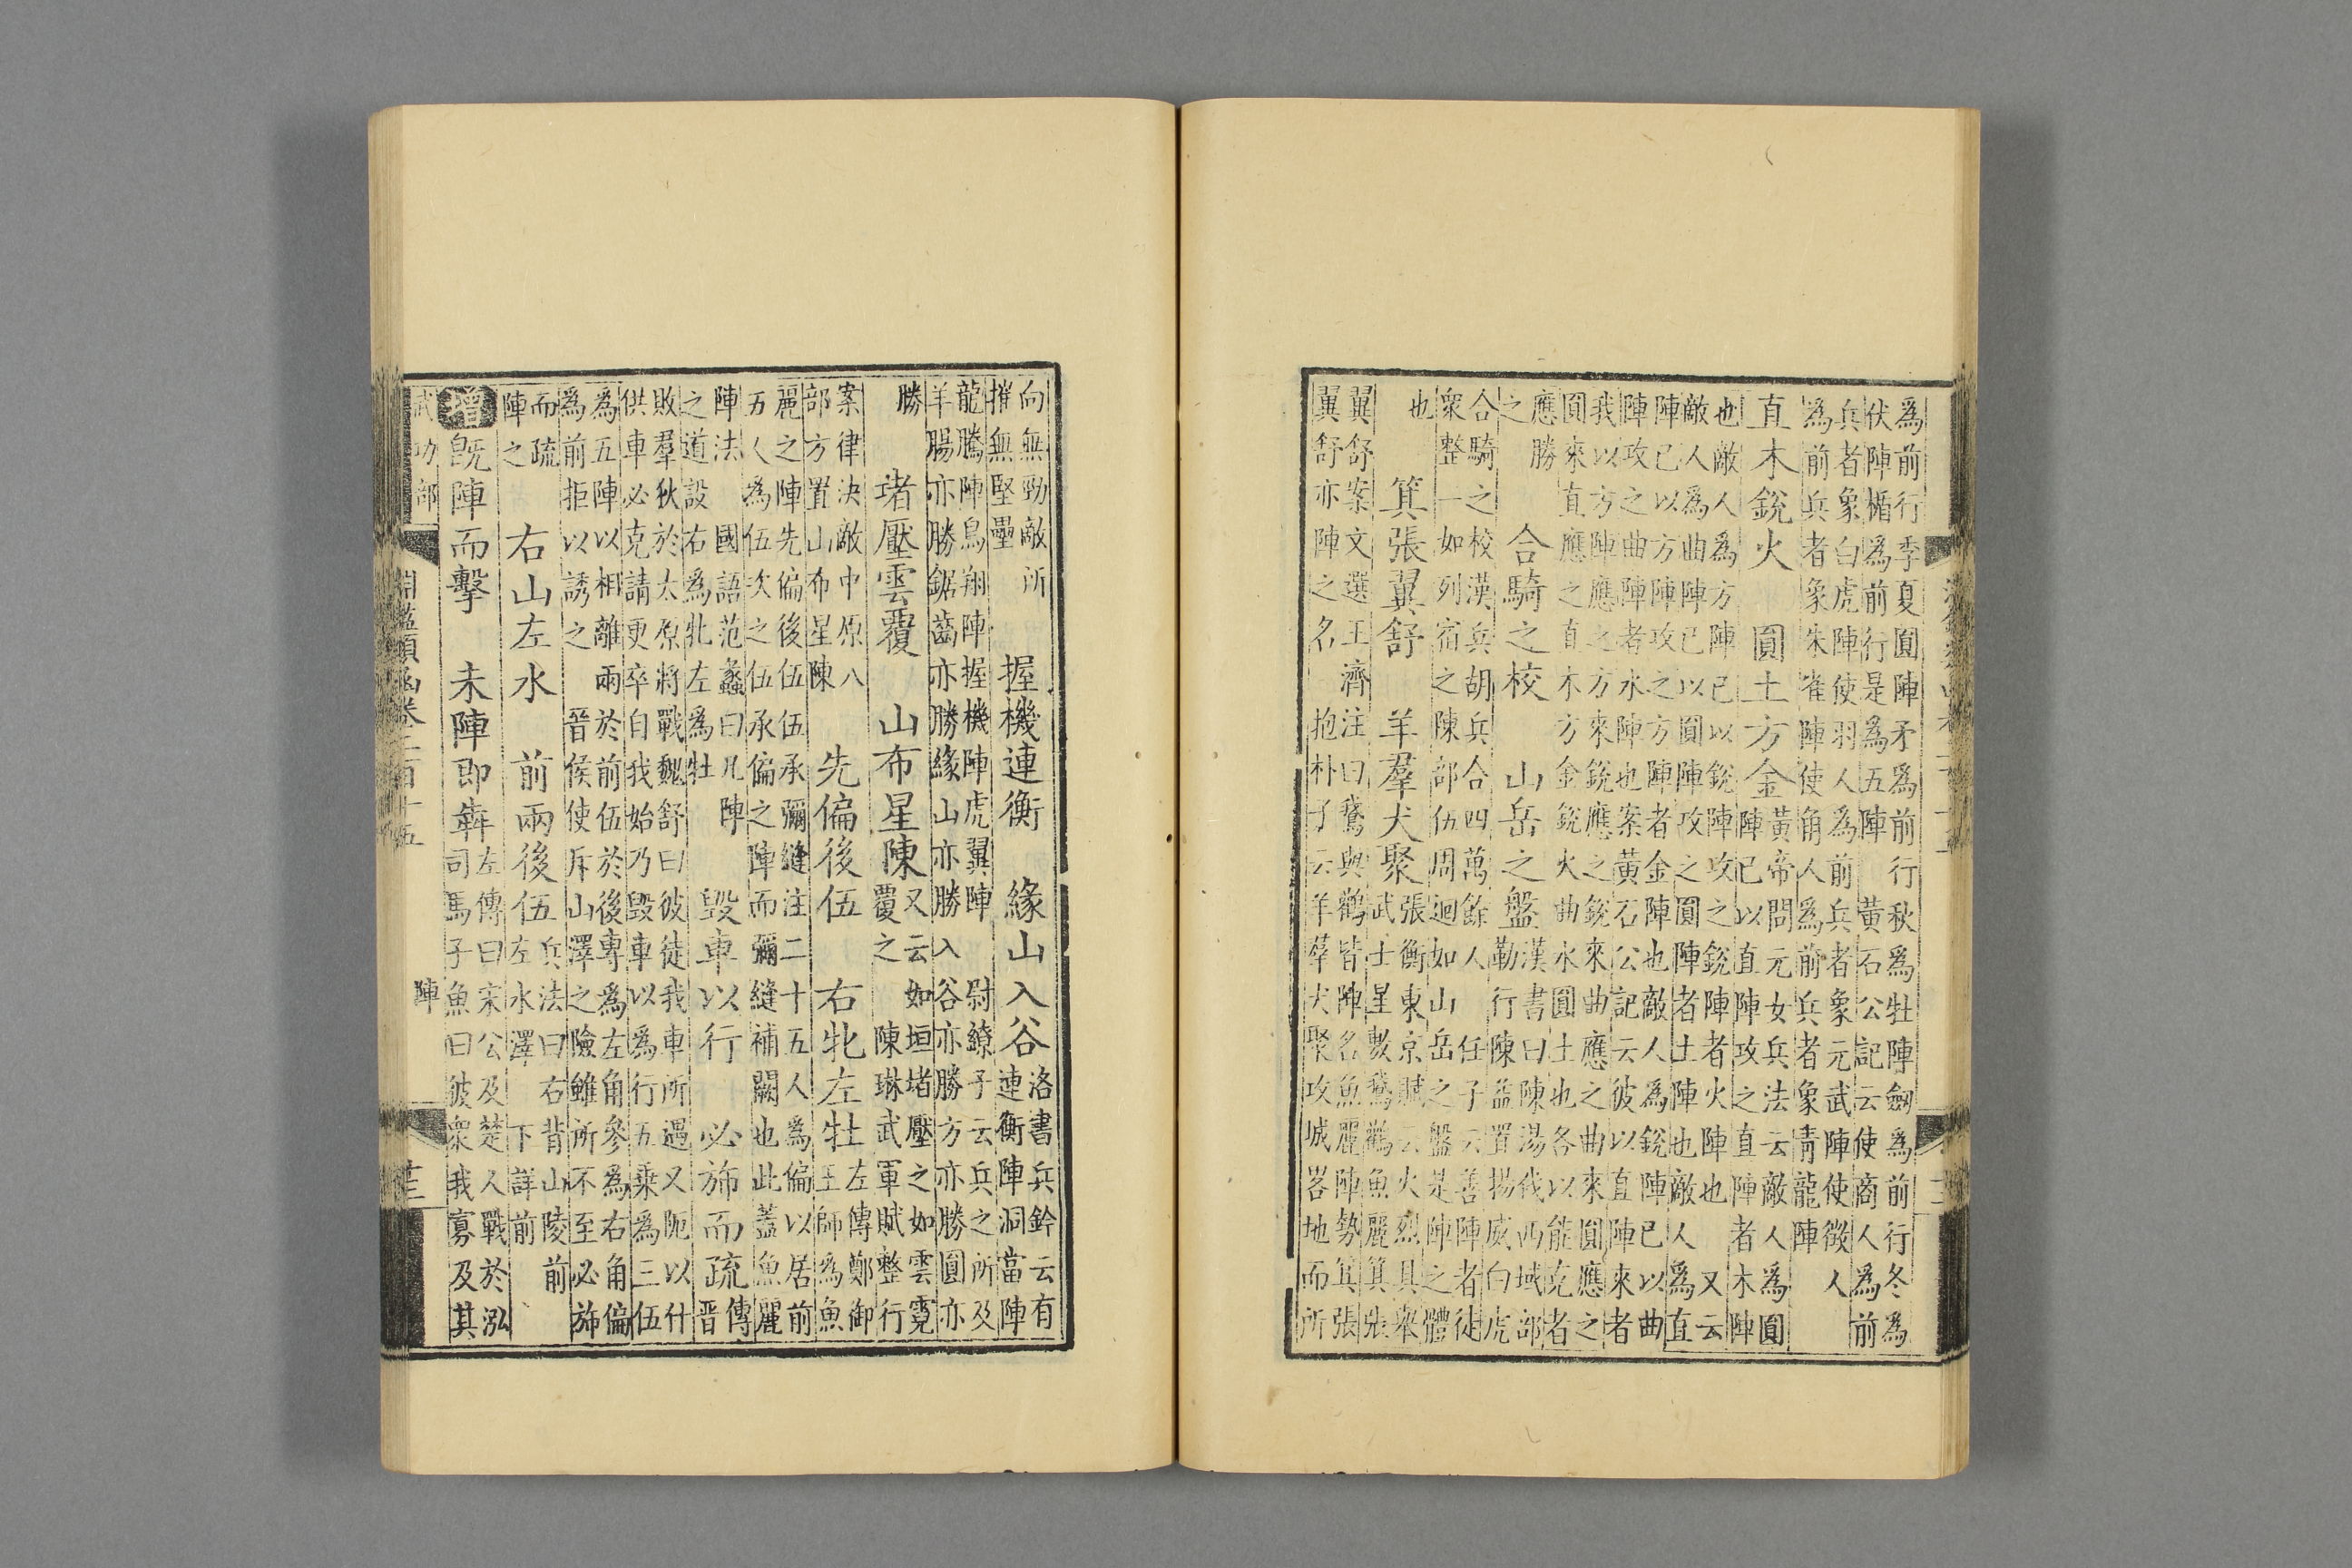 為前行季夏圓陣矛為前行秋為牡陣劔為前行冬為
伏陣楯為前行是為五陣　黃石公記云使商人為前
兵者象白虎陣使羽人為前兵者象元武陣使徵人
為前兵者象朱雀陣使角人為前兵者象青龍陣
直木銳火　圓土方金
黃帝問元女兵法云敵人為圓
陣已以直陣攻之直陣者木陣
也敵人為方陣已以銳陣攻之銳陣者火陣也　又云
敵人為曲陣已以圓陣攻之圓陣者土陣也敵人為直
陣已以方陣攻之方陣者金陣也敵人為銳陣已以曲
陣攻之曲陣者水陣也案黃石公記云彼以直陣來者
我以方陣應之方來銳應之銳來曲應之曲來圓應之
圓來直應之直木方金銳火曲水圓土也各以能克者
應勝
之
合騎之校　山岳之盤
漢書曰陳湯伐西域部
勒行陳益置揚威白虎
合騎之校漢兵胡兵合四萬餘人　任子云善陣者徒
衆整一如列宿之陳部伍周迴如山岳之盤是陣之體
也
箕張翼舒　羊羣犬聚
張衡東京賦云火烈具舉
武士星敷鵞鸛魚麗箕張
翼舒案文選王濟注曰鵞與鸛皆陣名魚麗陣勢箕張
翼舒亦陣之名　抱朴子云羊羣犬聚攻城畧地而所
向無勁敵所
摧無堅壘
握機連衡　緣山入谷
洛書兵鈐云有
連衡陣洞當陣
龍騰陣鳥翔陣握機陣虎翼陣　尉繚子云兵之所及
羊腸亦勝鋸齒亦勝緣山亦勝入谷亦勝方亦勝圓亦
勝
堵壓雲覆　山布星陳
又云如垣堵壓之如雲霓
覆之　陳琳武軍賦整行
案律決敵中原八
部方置山布星陳
先偏後伍　右牝左牡
左傳鄭御
王師為魚
麗之陣先偏後伍伍承彌縫注二十五人為偏以居前
五人為伍次之伍承偏之陣而彌縫補闕也此蓋魚麗
陣法　國語范蠡曰凡陣
之道設右為牝左為牡
毀車以行　必斾而疏
傳
晉
敗羣狄於太原將戰魏舒曰彼徒我車所遇又阨以什
供車必克請更卒自我始乃毀車以為行五乘為三伍
為五陣以相離兩於前伍於後專為左角參為右角偏
為前拒以誘之　晉侯使斥山澤之險雖所不至必斾
而疏
陣之
右山左水　前兩後伍
兵法曰右背山陵前
左水澤　下詳前
增既陣而擊　未陣即犇
左傳曰宋公及楚人戰於泓
司馬子魚曰彼衆我寡及其
武功部　淵鑑類函卷二百十五　陣　十三